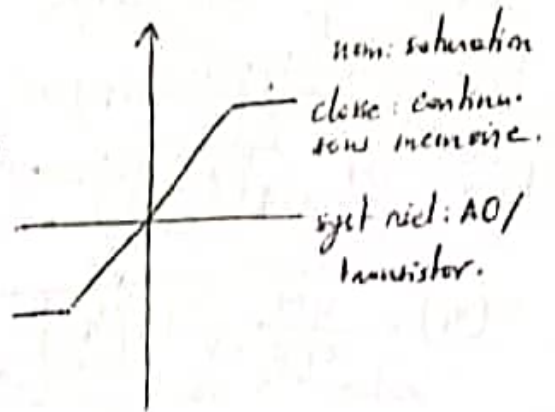 nom: saturation
classe: continu.
sans memoire.
syst réel: AO/
transistor.